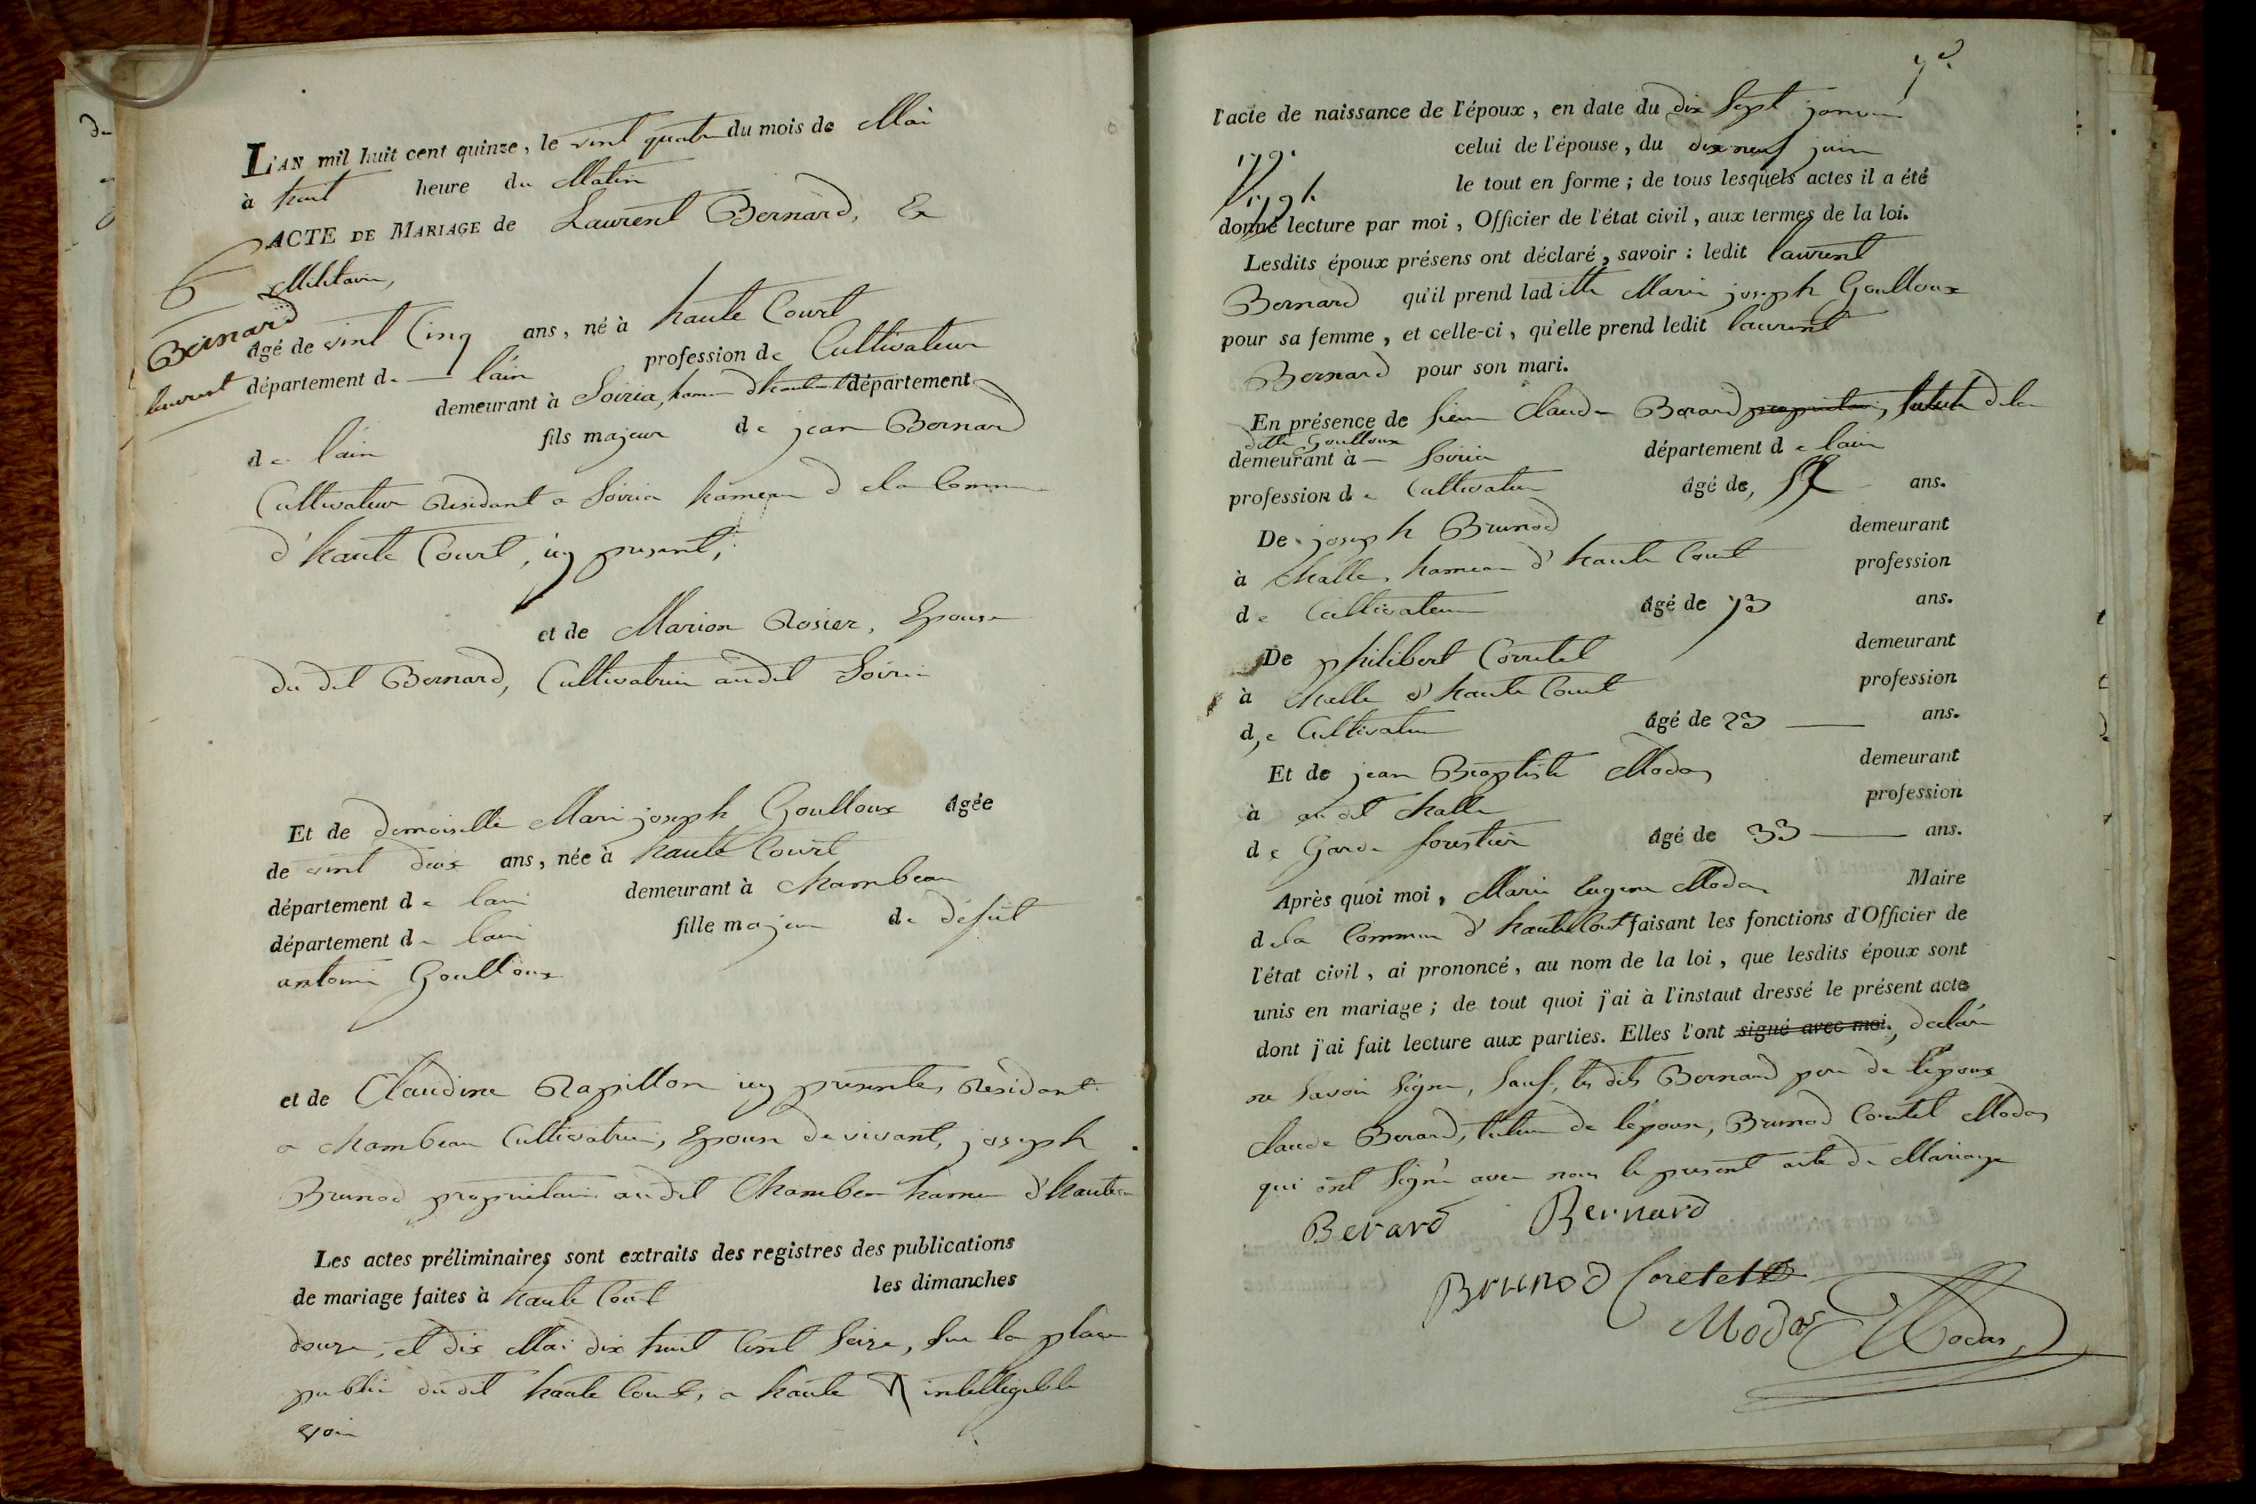 L'AN mil huit cent quinze, le vint quatre du mois de Mai
à huit heure du Matin
ACTE DE MARIAGE de Laurent Bernard, Ex
Militaire,
6
Bernard
laurent
âgé de vint Cinq ans, né à haute Court
département de l'ain profession de Cultivateur
demeurant à Soiria, hameau d'haute département
de l'ain fils majeur de jean Bernard
Cultivateur Residant a Soiria hameau d ela Commune
d'haute Court, icy present,
et de Marion Rosier, Epouse
du dit Bernard, Cultivatrice audit Soiria
Et de demoiselle Marie joseph Goulloux âgée
de vint deux ans, née à haute Court
département de lain demeurant à Chambeau
département de lain fille majeure de défut
antoine Goulloux
et de Claudine Rapillon icy presente, Residant
a Chambeau Cultivatrice, Epouse de vivant, joseph
Brunod proprietaire audit Chambeau hameau d'haute
Les actes préliminaires sont extraits des registres des publications
de mariage faites à haute Court les dimanches
douze, et dix Mai dix huit Cent Seize, Sur la place
public du dit haute Court, a haute & intelligible
voix
l'acte de naissance de l'époux, en date du dix Sept janvier
179. celui de l'épouse, du dix neuf juin
le tout en forme ; de tous lesquels actes il a été
donné lecture par moi, Officier de l'état civil, aux termes de la loi.
Lesdits époux présens ont déclaré, savoir : ledit laurent
Bernard qu'il prend laditte Marie joseph Goulloux
pour sa femme, et celle-ci, qu'elle prend ledit laurent
Bernard pour son mari.
En présence de Sieur Claude Berard proprietaire, tuteur de la
ditte Goulloux
demeurant à Soiria département de lain
profession de Cultivateur âgé de, ans.
De joseph Brunod demeurant
à Challe, hameau d'haute Court profession
de Cultivateur âgé de 73 ans.
De philibert Corretel demeurant
à Challe d'haute Court profession
de Cultivateur âgé de 23 ans.
Et de jean Baptiste Modas demeurant
à au dit Challe profession
de Garde forestier âgé de 33 ans.
Après quoi moi, Marie Eugene Modas Maire
dela Commune d'haute Court faisant les fonctions d'Officier de
l'état civil, ai prononcé, au nom de la loi, que lesdits époux sont
unis en mariage ; de tout quoi j'ai à l'instaut dressé le présent acte
dont j'ai fait lecture aux parties. Elles l'ont signé avec moi, declaré
ne Savoir Signer, Sauf, les dits Bernard pere de l'époux
Claude Berard, tuteur de l'épouse, Brunod Corretel Modas
qui ont Signé avec nous le present acte de Mariage
Berard Bernard
Brunod Coretel
Modas Modas